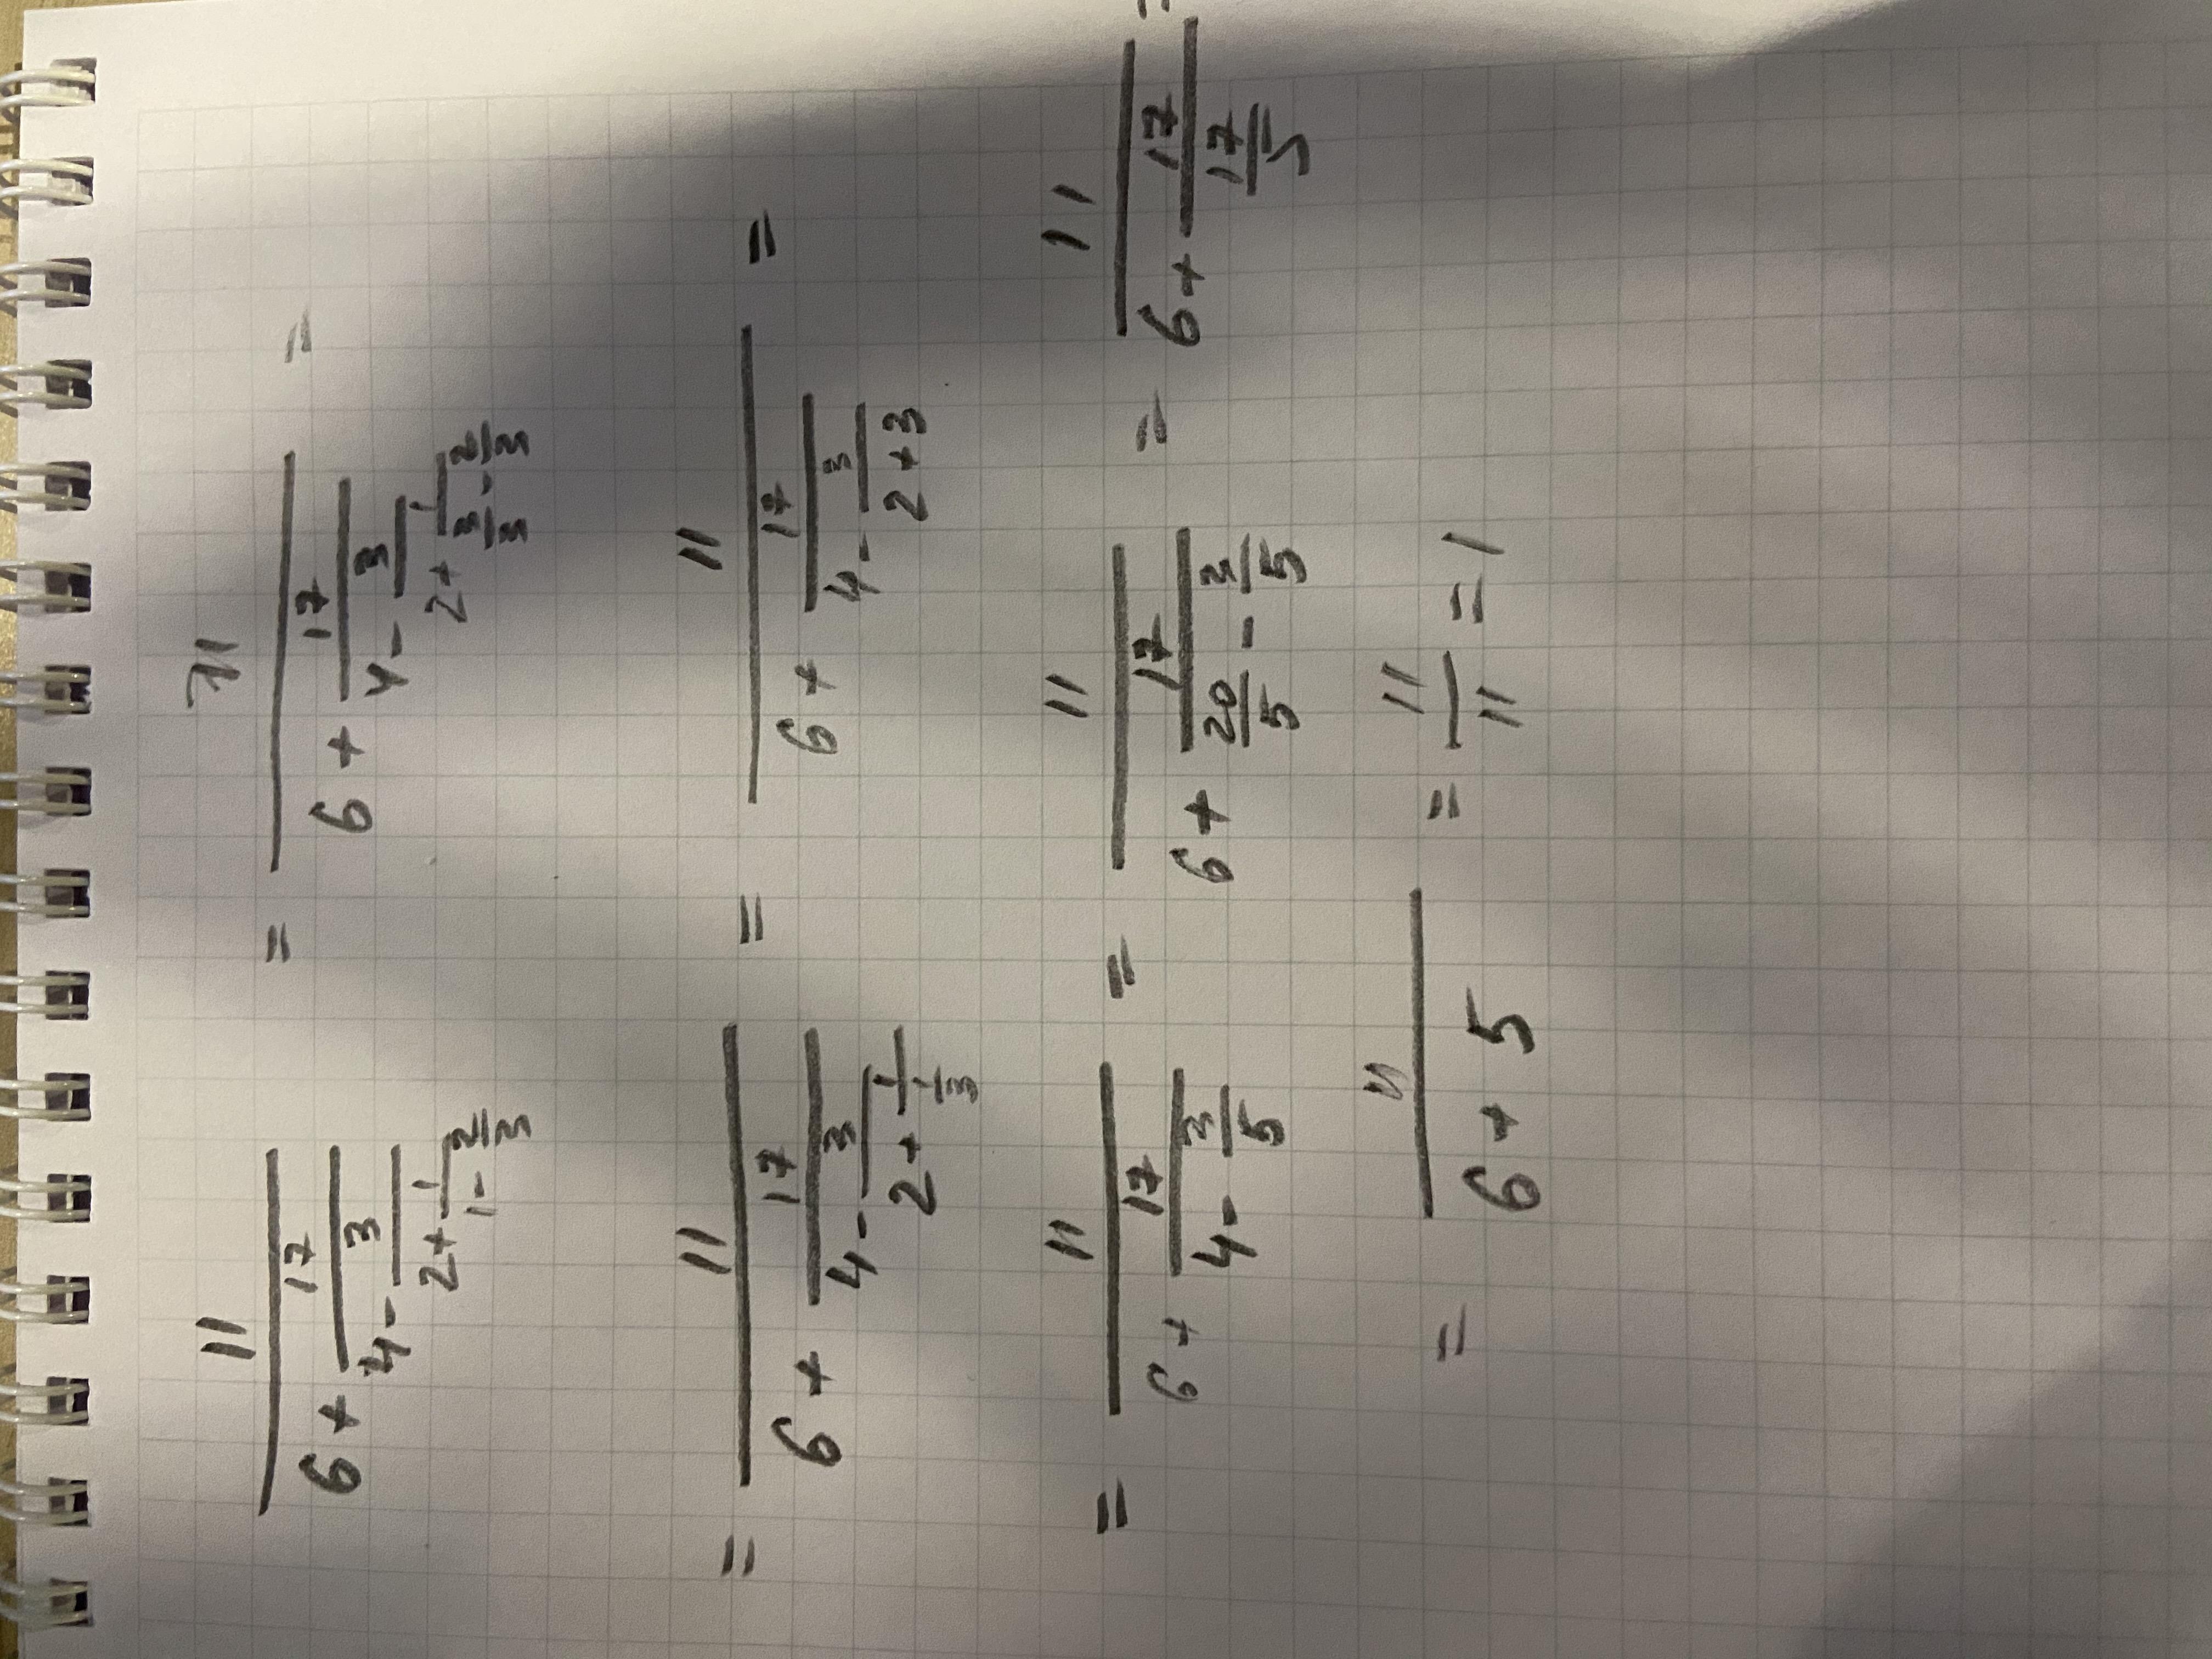 11/(6 + 17/(4 - 3/(2 + 1/(1 - 2/3)))) = 11/(6 + 17/(4 - 3/(2 + 1/(3/3 - 2/3)))) =
= 11/(6 + 17/(4 - 3/(2 + 1/(1/3)))) = 11/(6 + 17/(4 - 3/(2 + 3))) =
= 11/(6 + 17/(4 - 3/5)) = 11/(6 + 17/(20/5 - 3/5)) = 11/(6 + 17/(17/5)) =
= 11/(6 + 5) = 11/11 = 1